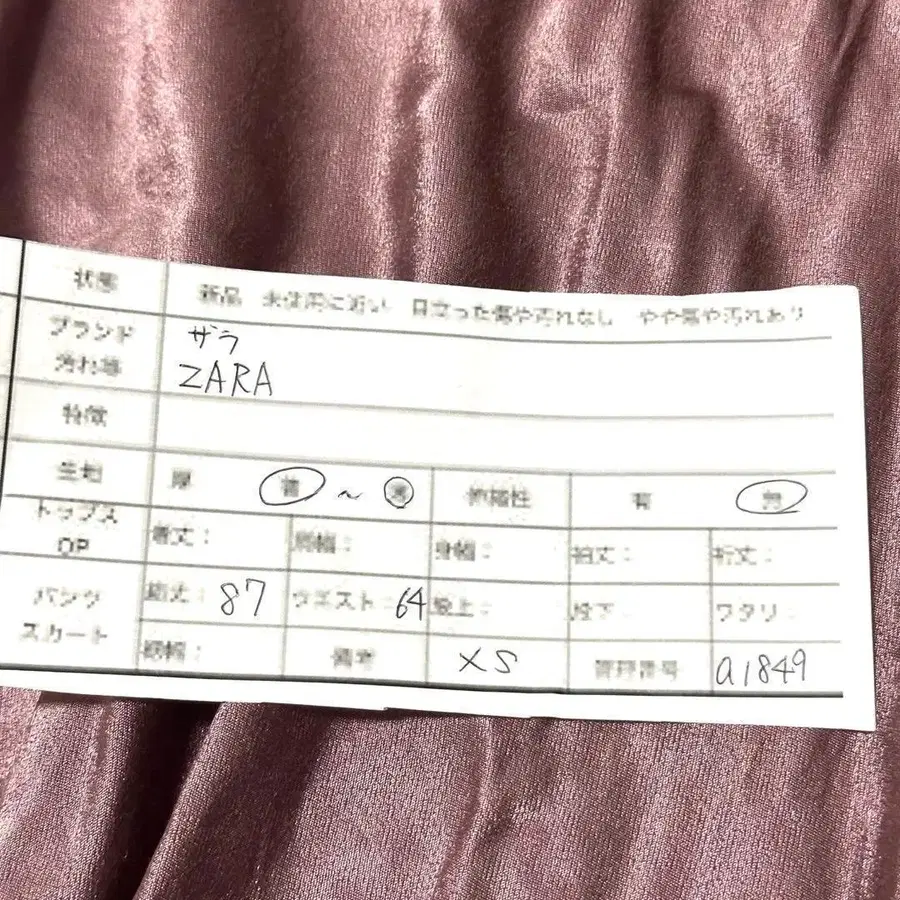 状態 新品 未使用に近い 目立った傷や汚れなし やや傷や汚れあり
ブランド ザラ
汚れ等 ZARA
特徴
生地 厚 普 ~ 薄 伸縮性 有 無
トップス
OP 着丈: 肩幅: 身幅: 袖丈: 裄丈:
パンツ 総丈: 87 ウエスト: 64 股上: 股下: ワタリ:
スカート 裾幅: 備考 XS 管理番号 a1849